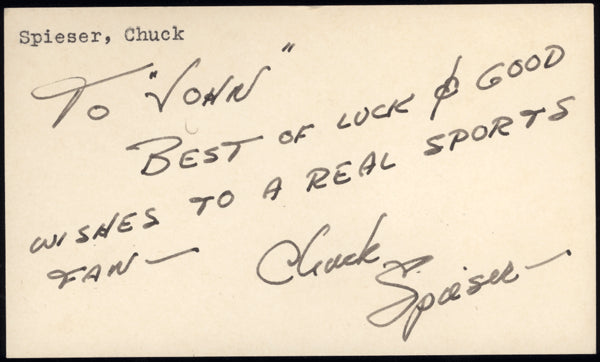 Spieser, Chuck
To "JOHN"
BEST OF LUCK & GOOD
WISHES TO A REAL SPORTS
FAN—
Chuck
Spieser—